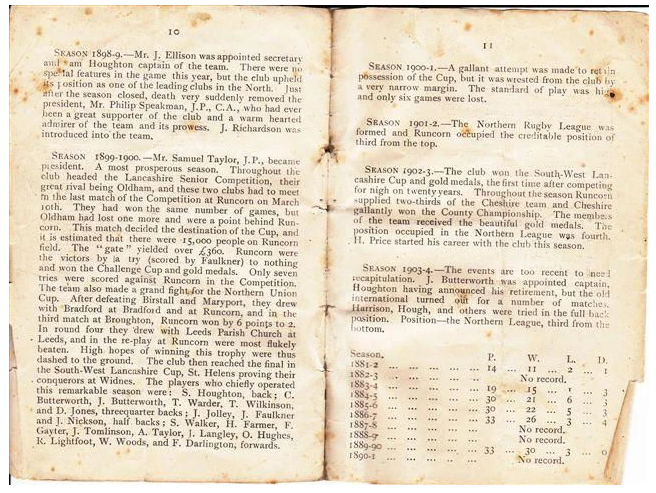 10
SEASON 1898-9.—Mr. J. Ellison was appointed secretary
am Houghton captain of the team. There were no
features in the game this year, but the club upheld
position as one of the leading clubs in the North. Just
after the season closed, death very suddenly removed the
president, Mr. Philip Speakman, J.P., C.A., who had ever
been a great supporter of the club and a warm hearted
admirer of the team and its prowess. J. Richardson was
introduced into the team.
SEASON 1899-1900.—Mr. Samuel Taylor, J.P., became
president. A most prosperous season. Throughout the
club headed the Lancashire Senior Competition, their
great rival being Oldham, and these two clubs had to meet
in the last match of the Competition at Runcorn on March
10th. They had won the same number of games, but
Oldham had lost one more and were a point behind Run-
corn. This match decided the destination of the Cup, and
it is estimated that there were 15,000 people on Runcorn
field. The "gate" yielded over £360. Runcorn were
the victors by a try (scored by Faulkner) to nothing
and won the Challenge Cup and gold medals. Only seven
tries were scored against Runcorn in the Competition.
The team also made a grand fight for the Northern Union
Cup. After defeating Birstall and Maryport, they drew
with Bradford at Bradford and at Runcorn, and in the
third match at Broughton, Runcorn won by 6 points to 2.
In round four they drew with Leeds Parish Church at
Leeds, and in the re-play at Runcorn were most flukely
beaten. High hopes of winning this trophy were thus
dashed to the ground. The club then reached the final in
the South-West Lancashire Cup, St. Helens proving their
conquerors at Widnes. The players who chiefly operated
this remarkable season were: S. Houghton, back; C.
Butterworth, J. Butterworth, T. Warder, T. Wilkinson,
and D. Jones, threequarter backs; J. Jolley, J. Faulkner
and J. Nickson, half backs; S. Walker, H. Farmer, F.
Gayter, J. Tomlinson, A. Taylor, J. Langley, O. Hughes,
R. Lightfoot, W. Woods, and F. Darlington, forwards.
11
SEASON 1900-1.—A gallant attempt was made to retain
possession of the Cup, but it was wrested from the club by
a very narrow margin. The standard of play was high
and only six games were lost.
SEASON 1901-2.—The Northern Rugby League was
formed and Runcorn occupied the creditable position of
third from the top.
SEASON 1902-3.—The club won the South-West Lan-
cashire Cup and gold medals, the first time after competing
for nigh on twenty years. Throughout the season Runcorn
supplied two-thirds of the Cheshire team and Cheshire
gallantly won the County Championship. The members
of the team received the beautiful gold medals. The
position occupied in the Northern League was fourth.
H. Price started his career with the club this season.
SEASON 1903-4.—The events are too recent to need
recapitulation. J. Butterworth was appointed captain,
Houghton having announced his retirement, but the old
international turned out for a number of matches.
Harrison, Hough, and others were tried in the full back
position. Position—the Northern League, third from the
bottom.
Season. P. W. L. D.
1881-2 ... ... ... ... 14 ... 11 ... 2 ... 1
1882-3 ... ... ... ... No record.
1883-4 ... ... ... ... 19 ... 15 ... 1 ... 3
1884-5 ... ... ... ... 30 ... 21 ... 6 ... 3
1885-6 ... ... ... ... 30 ... 22 ... 5 ... 3
1886-7 ... ... ... ... 33 ... 26 ... 3 ... 4
1887-8 ... ... ... ... No record.
1888-9 ... ... ... ... No record.
1889-90 ... ... ... ... 33 ... 30 ... 3 ... 0
1890-1 ... ... ... ... No record.